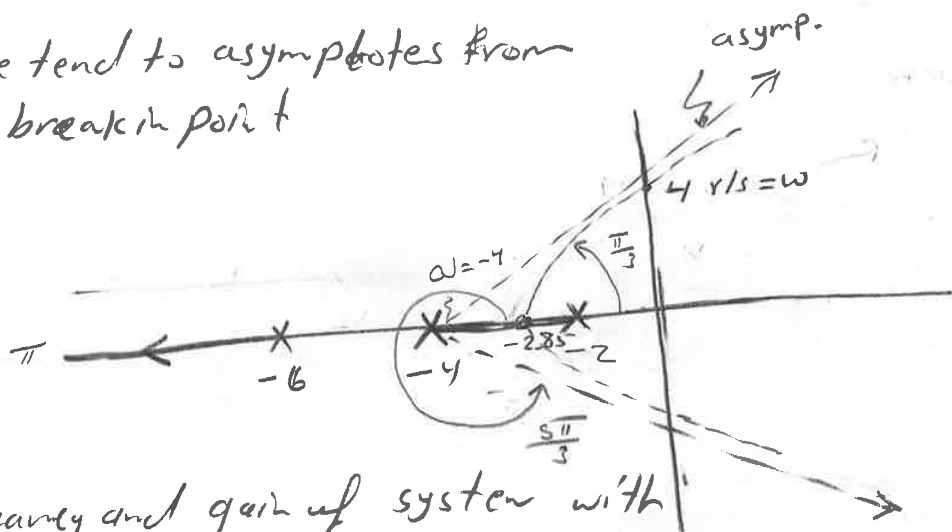 e tend to asymptotes from
breakin point
asymp.
4 r/s = ω
π/3
a = -4
π
-6
-4
-2.85
-2
5π/3
and gain of system with